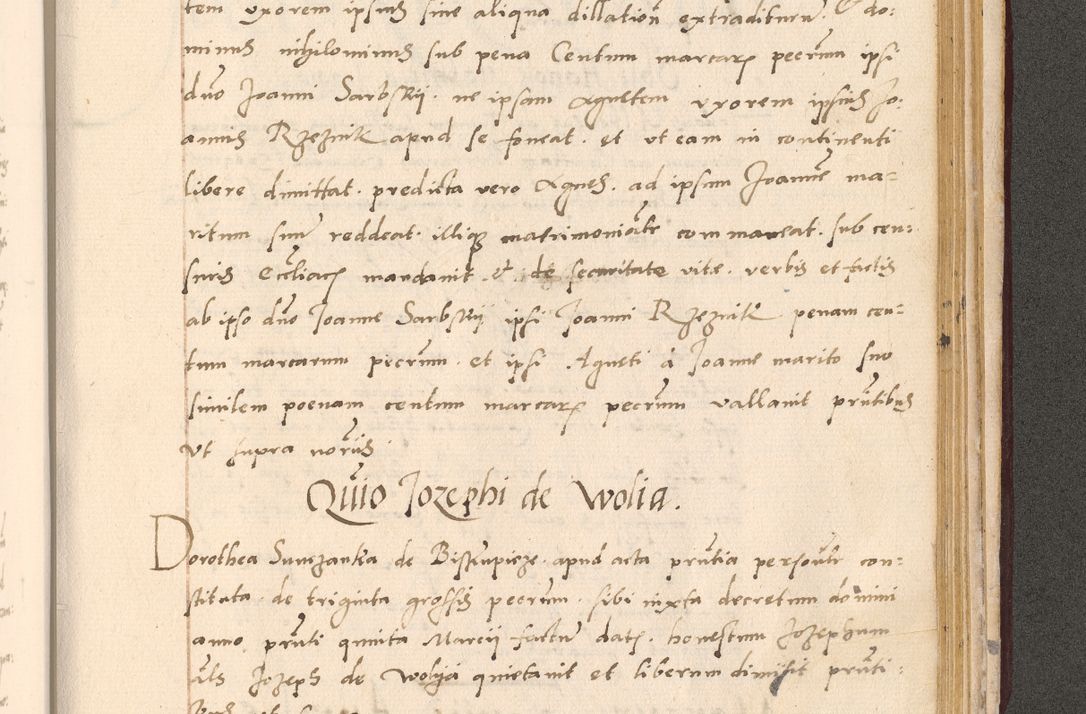 tem uxorem ipsius sine aliqua dillation extraditurum. Et do:
minus nihilominus sub pena Centum marcarum pecunium ipsi
dno Joanni Sarbskii. ne ipsam Agnetem uxorem ipsius Jo:
annis Rzeznik apud se foveat. et ut eam in continenti
libere dimittat. predicta vero Agnes. ad ipsum Joannem ma=
ritum suum reddeat. illique matrimonialr commaneat. sub cen:
suris Eccliacis mandavit. Et. de securitate vitæ. verbis et factis
ab ipso dno Joanne Sarbskii ipsi Joanni Rzeznik penam cen=
tum marcarum pecrum. et ipsi Agneti a Joanne marito suo
similem poenam centum marcarum pecrum vallavit prntibus
ut supra noriis
Quiio Jozephi de Wolia.
Dorothea de apud acta prntia personlr con:
stituta. de triginta grossis pecrum. sibi iuxta decretum domini
anno prnti quinta Marcii factum datis. honestum Jozephum
als Jozeph de Wolya quietavit et liberum dimisit prnti: